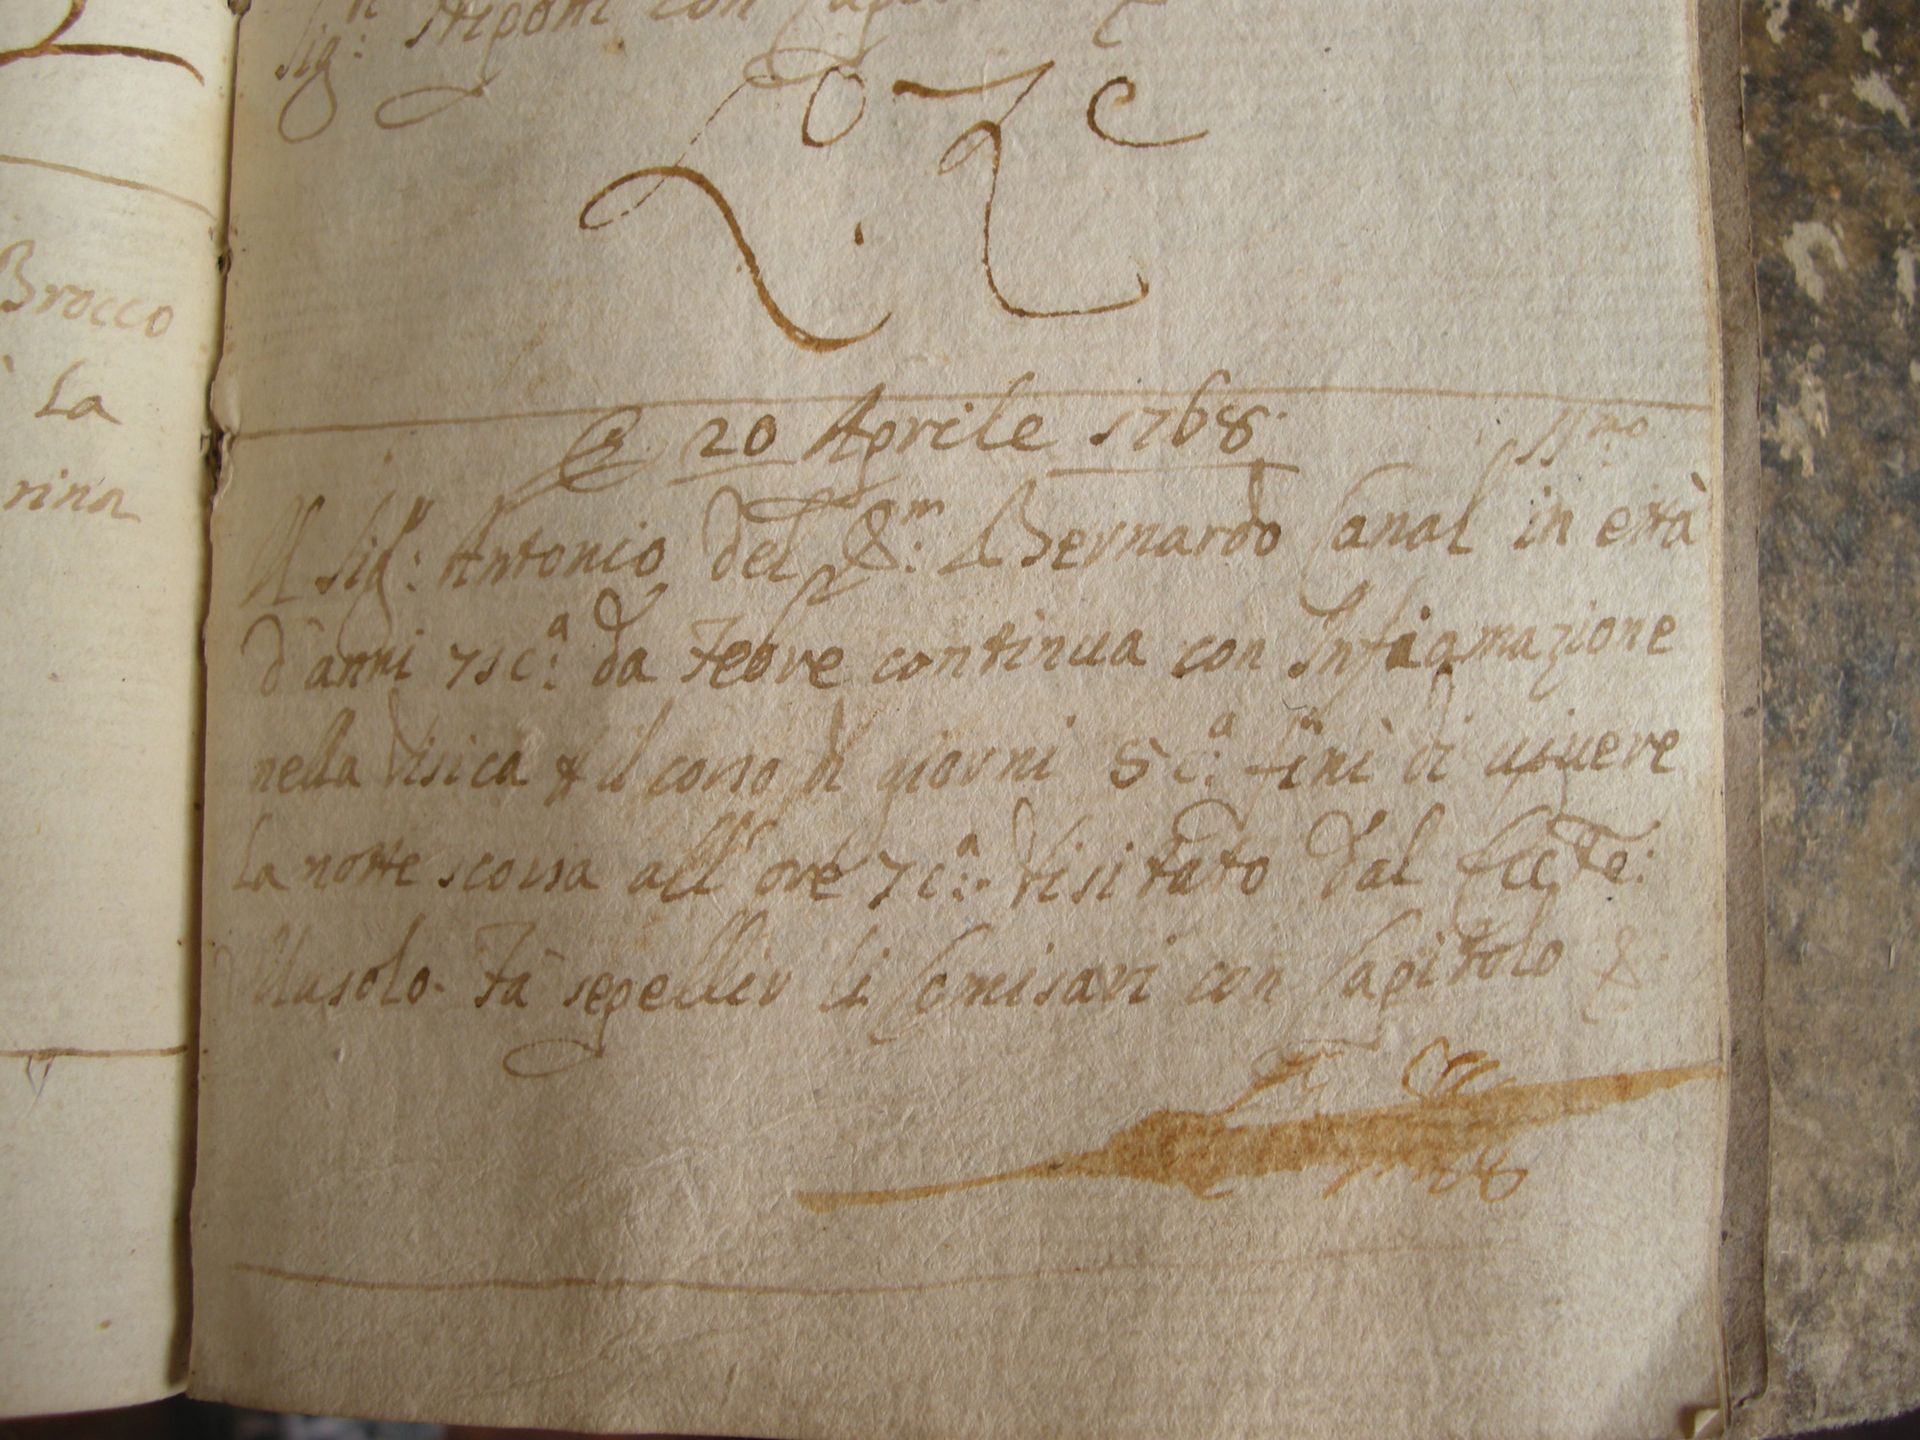 Brocco
La
rina
Sig:r Nipoti con
20 Aprile 1768.
Il Sig:r Antonio del q:m Bernardo Canal in età
d'anni 71 c:a da Febre continua con Infiamazione
nella Visica & il corso di giorni 5 c:a finì di vivere
La notte scorsa all'ore 7 c:a Visitato dal Ecc.te:
Musolo. Fà sepellir li Comisari con Capitolo &